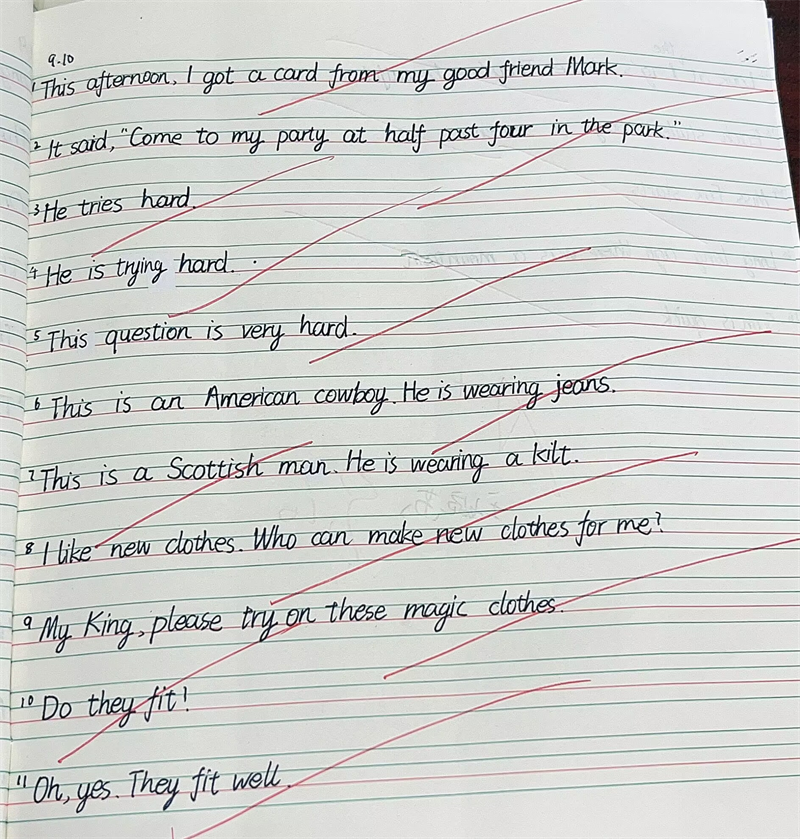 9.10
1 This afternoon, I got a card from my good friend Mark.
2 It said, "Come to my party at half past four in the park."
3 He tries hard.
4 He is trying hard.
5 This question is very hard.
6 This is an American cowboy. He is wearing jeans.
7 This is a Scottish man. He is wearing a kilt.
8 I like new clothes. Who can make new clothes for me?
9 My King, please try on these magic clothes.
10 Do they fit!
11 Oh, yes. They fit well.